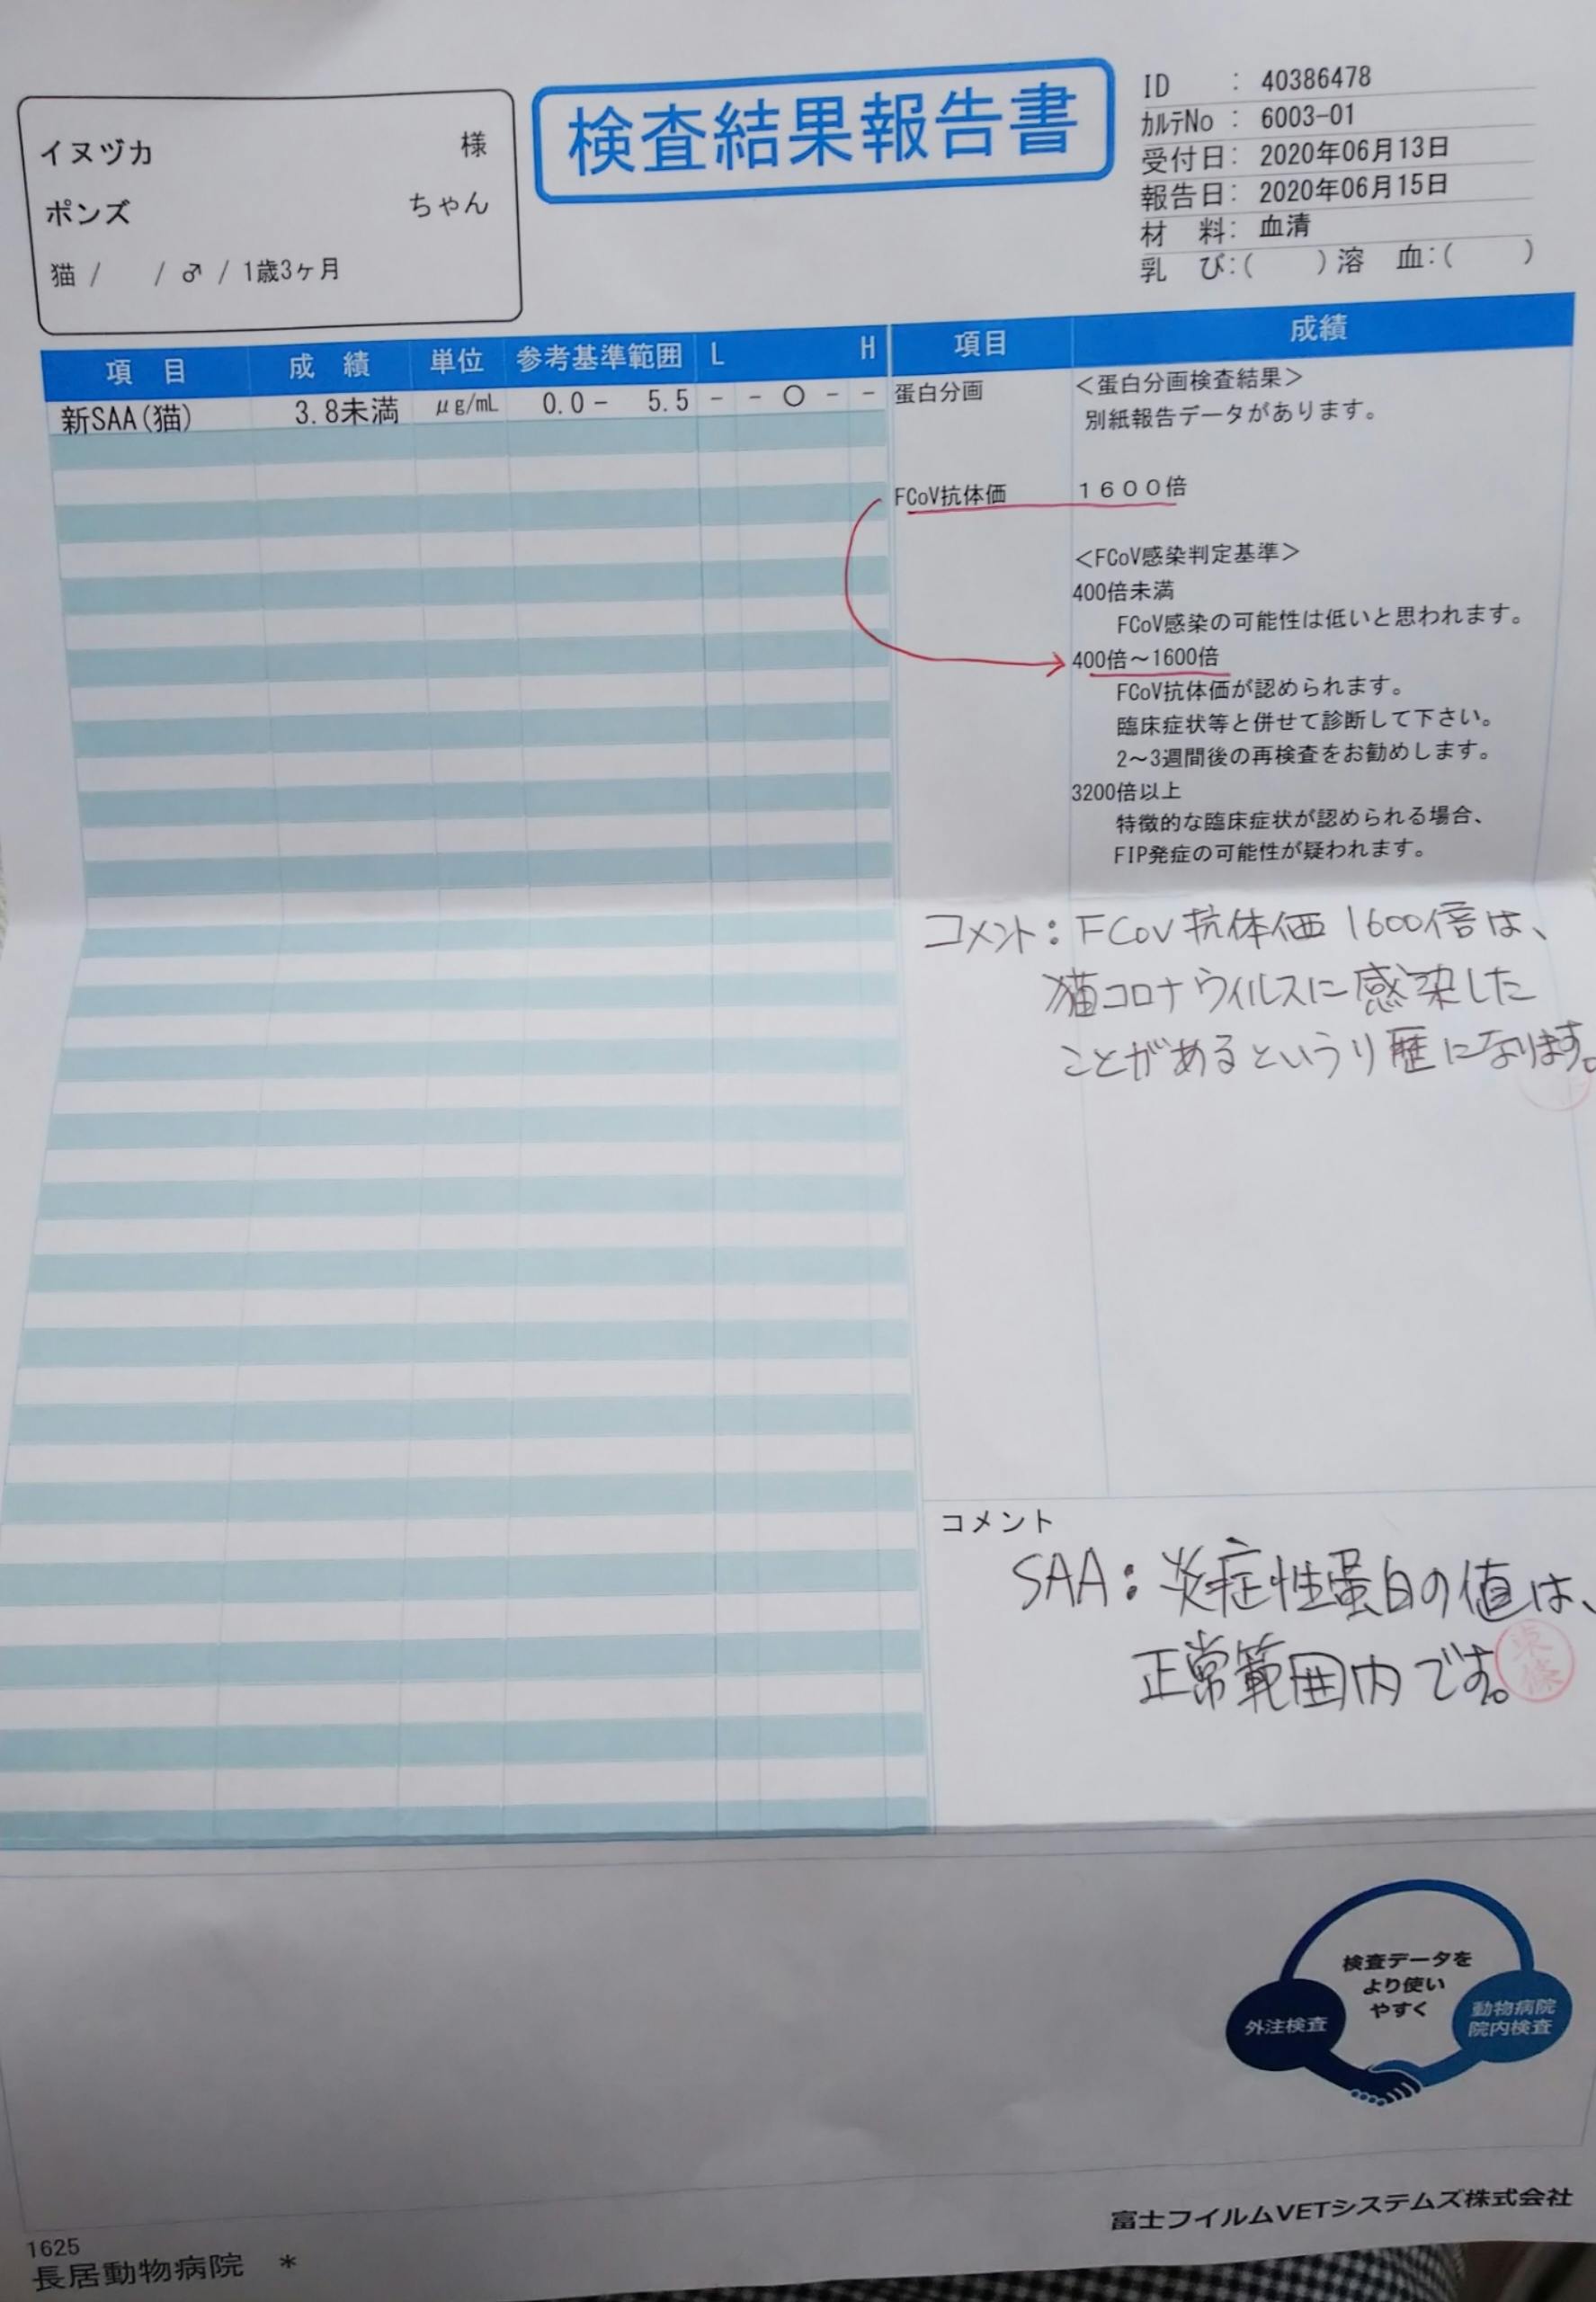 イヌヅカ 様
ポンズ ちゃん
猫 / / ♂ / 1歳3ヶ月
検査結果報告書
ID : 40386478
カルテNo : 6003-01
受付日: 2020年06月13日
報告日: 2020年06月15日
材 料: 血清
乳 び:( ) 溶 血:( )
項 目 成 績 単位 参考基準範囲 L H
新SAA(猫) 3.8未満 μg/mL 0.0 - 5.5 - - ○ - -
項目 成績
蛋白分画 <蛋白分画検査結果>
別紙報告データがあります。
FCoV抗体価 1600倍
<FCoV感染判定基準>
400倍未満
FCoV感染の可能性は低いと思われます。
400倍~1600倍
FCoV抗体価が認められます。
臨床症状等と併せて診断して下さい。
2~3週間後の再検査をお勧めします。
3200倍以上
特徴的な臨床症状が認められる場合、
FIP発症の可能性が疑われます。
コメント: FCoV抗体価 1600倍は、
猫コロナウィルスに感染した
ことがあるというり歴になります。
コメント
SAA: 炎症性蛋白の値は、
正常範囲内です。
東條
検査データを
より使い
やすく
外注検査
動物病院
院内検査
富士フイルムVETシステムズ株式会社
1625
長居動物病院 *